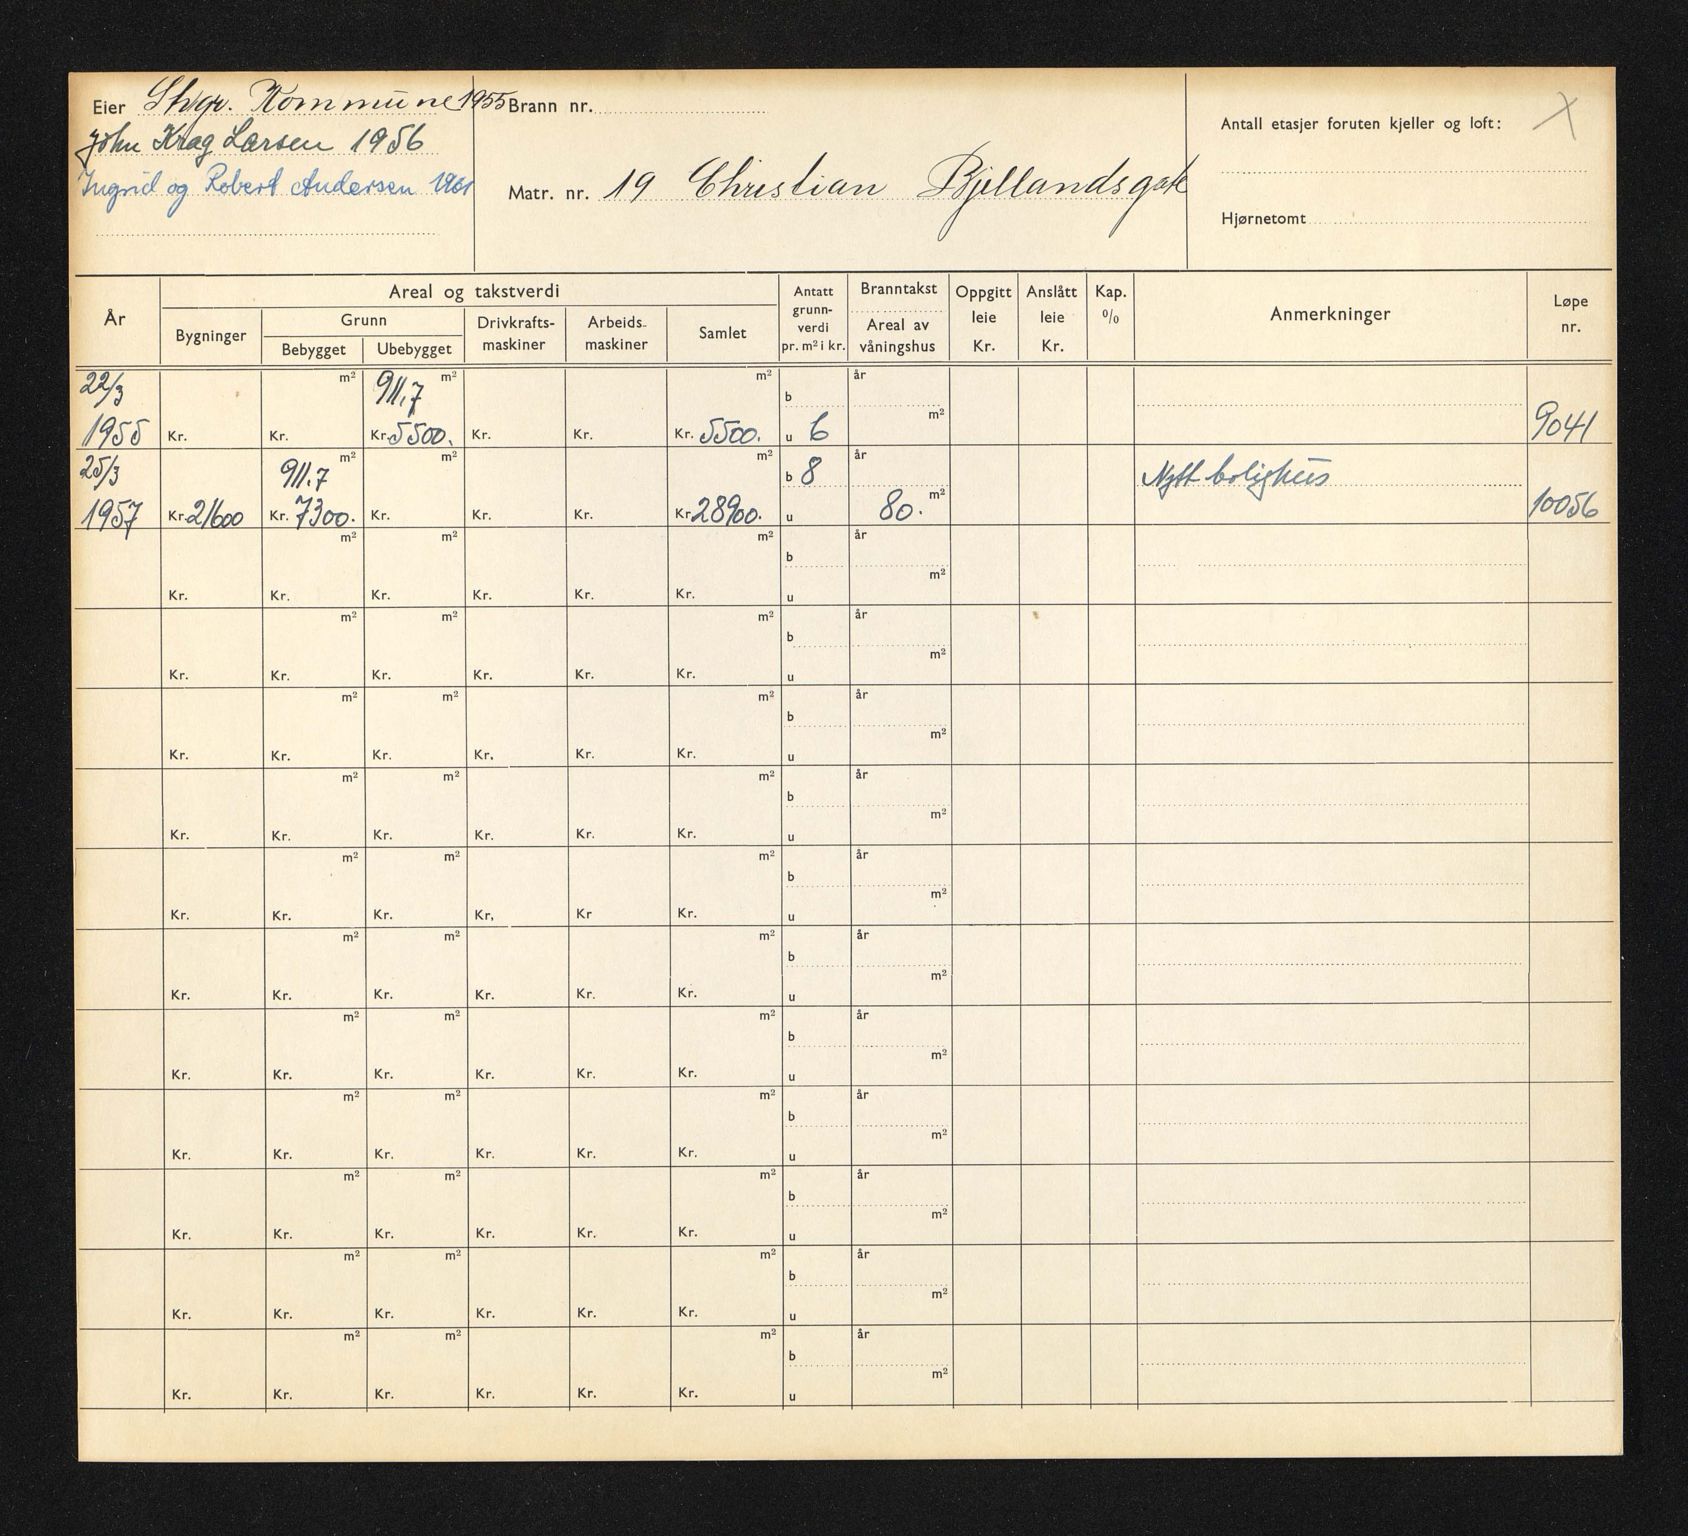 Eier Stvgr. Kommune 1955
John Krag Larsen 1956
Ingrid og Robert Andersen 1961
Brann nr.
Matr. nr. 19 Christian Bjellandsgate
Antall etasjer foruten kjeller og loft:
Hjørnetomt
År
Areal og takstverdi
Bygninger
Grunn
Bebygget Ubebygget
Drivkrafts-
maskiner
Arbeids-
maskiner
Samlet
Antatt
grunn-
verdi
pr. m² i kr.
Branntakst
Areal av
våningshus
Oppgitt
leie
Kr.
Anslått
leie
Kr.
Kap.
%
Anmerkninger
Løpe
nr.
22/3 m² 911,7 m² m² b år
1955 Kr. Kr. Kr. 5500. Kr. Kr. Kr. 5500. u 6 m² 9041
25/3 911.7 m² m² m² b 8 år Nytt bolighus
1957 Kr. 21600 Kr. 7300. Kr. Kr. Kr. Kr. 28900. u 80. m² 10056
m² m² m² b år
Kr. Kr. Kr. Kr. Kr. Kr. u m²
m² m² m² b år
Kr. Kr. Kr. Kr. Kr. Kr. u m²
m² m² m² b år
Kr. Kr. Kr. Kr. Kr. Kr. u m²
m² m² m² b år
Kr. Kr. Kr. Kr. Kr. Kr. u m²
m² m² m² b år
Kr. Kr. Kr. Kr. Kr Kr. u m²
m² m² m² b år
Kr. Kr. Kr. Kr. Kr. Kr. u m²
m² m² m² b år
Kr. Kr. Kr. Kr. Kr. Kr. u m²
m² m² m² b år
Kr. Kr. Kr. Kr. Kr. Kr. u m²
m² m² m² b år
Kr. Kr. Kr. Kr. Kr. Kr. u m²
m² m² m² b år
Kr. Kr. Kr. Kr. Kr. Kr. u m²
m² m² m² b år
Kr. Kr. Kr. Kr. Kr. Kr. u m²